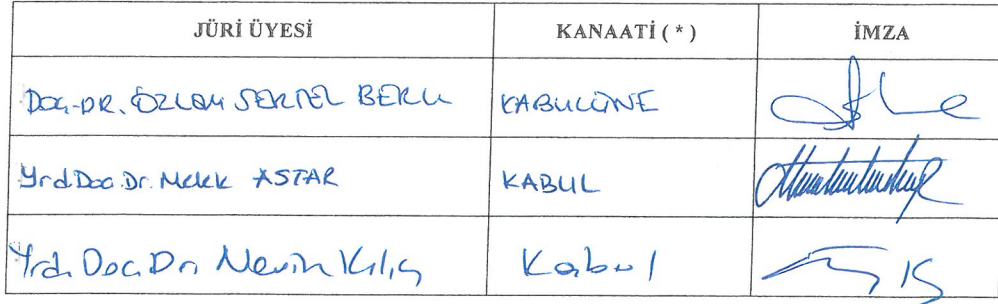 JÜRİ ÜYESİ KANAATİ ( * ) İMZA
Doç. DR. ÖZLEM SERTEL BERK KABULÜNE
Yrd. Doç. Dr. Melek ASTAR KABUL
Yrd. Doç. Dr. Nevin Kılıç Kabul